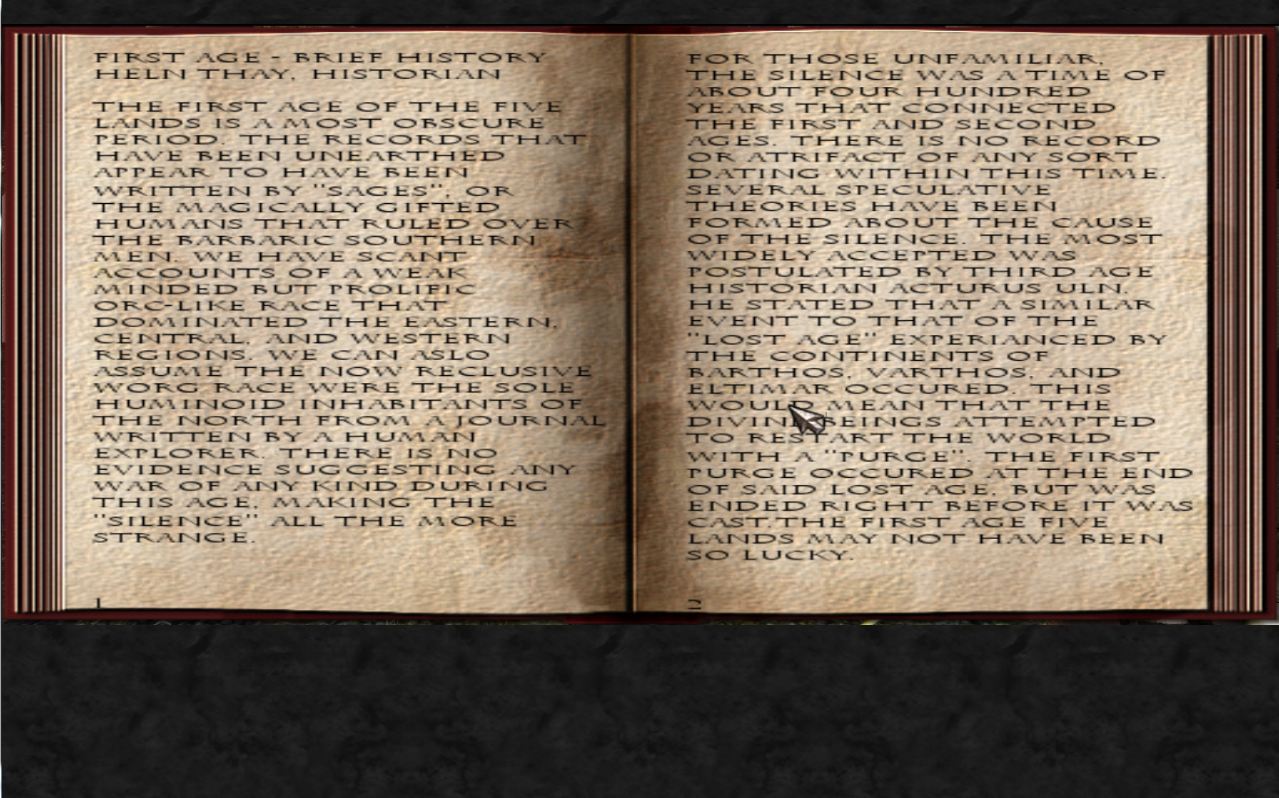 FIRST AGE - BRIEF HISTORY
HELN THAY, HISTORIAN
THE FIRST AGE OF THE FIVE
LANDS IS A MOST OBSCURE
PERIOD. THE RECORDS THAT
HAVE BEEN UNEARTHED
APPEAR TO HAVE BEEN
WRITTEN BY "SAGES", OR
THE MAGICALLY GIFTED
HUMANS THAT RULED OVER
THE BARBARIC SOUTHERN
MEN. WE HAVE SCANT
ACCOUNTS OF A WEAK
MINDED BUT PROLIFIC
ORC-LIKE RACE THAT
DOMINATED THE EASTERN,
CENTRAL, AND WESTERN
REGIONS. WE CAN ASLO
ASSUME THE NOW RECLUSIVE
WORG RACE WERE THE SOLE
HUMINOID INHABITANTS OF
THE NORTH FROM A JOURNAL
WRITTEN BY A HUMAN
EXPLORER. THERE IS NO
EVIDENCE SUGGESTING ANY
WAR OF ANY KIND DURING
THIS AGE, MAKING THE
"SILENCE" ALL THE MORE
STRANGE.
1
FOR THOSE UNFAMILIAR,
THE SILENCE WAS A TIME OF
ABOUT FOUR HUNDRED
YEARS THAT CONNECTED
THE FIRST AND SECOND
AGES. THERE IS NO RECORD
OR ATRIFACT OF ANY SORT
DATING WITHIN THIS TIME.
SEVERAL SPECULATIVE
THEORIES HAVE BEEN
FORMED ABOUT THE CAUSE
OF THE SILENCE. THE MOST
WIDELY ACCEPTED WAS
POSTULATED BY THIRD AGE
HISTORIAN ACTURUS ULN.
HE STATED THAT A SIMILAR
EVENT TO THAT OF THE
"LOST AGE" EXPERIANCED BY
THE CONTINENTS OF
BARTHOS, VARTHOS, AND
ELTIMAR OCCURED. THIS
WOULD MEAN THAT THE
DIVINE BEINGS ATTEMPTED
TO RESTART THE WORLD
WITH A "PURGE". THE FIRST
PURGE OCCURED AT THE END
OF SAID LOST AGE, BUT WAS
ENDED RIGHT BEFORE IT WAS
CAST.THE FIRST AGE FIVE
LANDS MAY NOT HAVE BEEN
SO LUCKY.
2